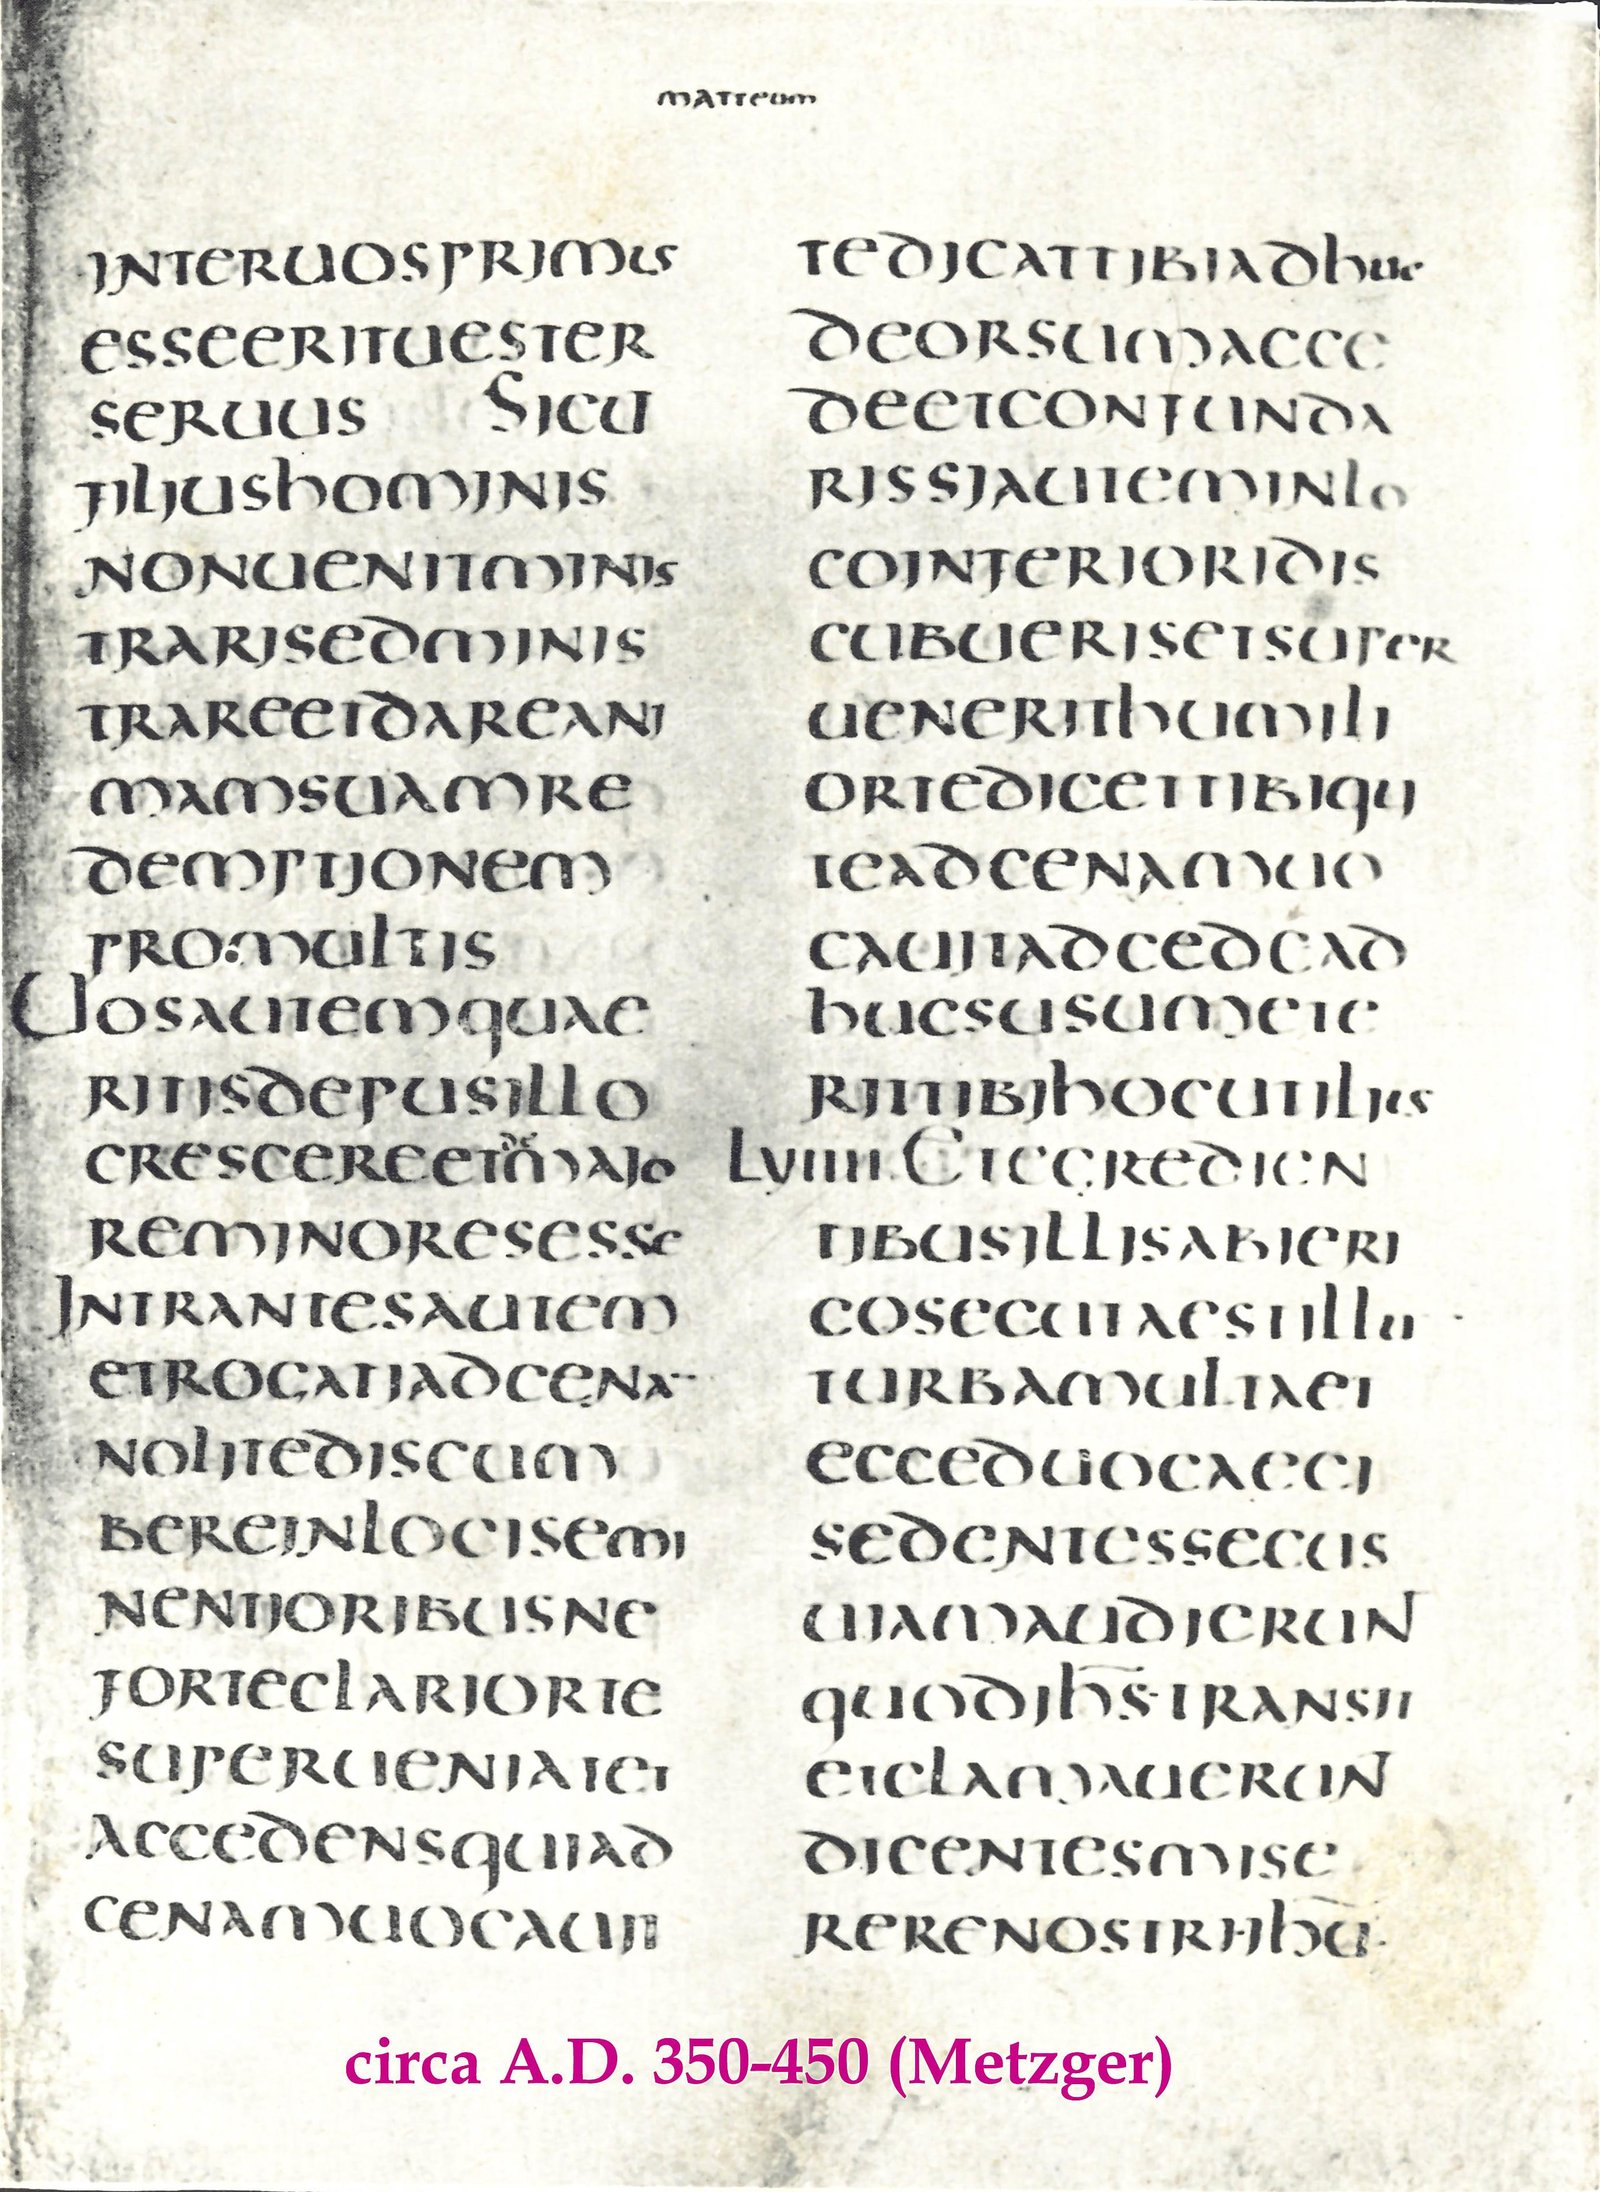 matteum
INTERUOSPRIMUS
ESSEERITUESTER
SERUUS SICUT
FILIUSHOMINIS
NONUENITMINIS
TRARISEDMINIS
TRAREETDAREANI
MAMSUAMRE
DEMPTIONEM
PROMULTIS
UOSAUTEMQUAE
RITISDEPUSILLO
CRESCEREETDEMAIO
REMINORESESSE
INTRANTESAUTEM
ETROGATIADCENA
NOLITEDISCUM
BEREINLOCISEMI
NENTIORIBUSNE
FORTECLARIORTE
SUPERUENIATET
ACCEDENSQUIAD
CENAMUOCAUIT
TEDICATTIBIADHUC
DEORSUMACCE
DEETCONFUNDA
RISSIAUTEMINLO
COINFERIORIDIS
CUBUERISETSUPER
UENERITHUMILI
ORTEDICETTIBIQUI
TEADCENAMUO
CAUITADCEDCAD
HUCSUSUMETE
RITTIBIHOCUTILIUS
LVIIII ETEGREDIEN
TIBUSILLISABIERI
COSECUTAESTILLU
TURBAMULTAET
ECCEDUOCAECI
SEDENTESSECUS
UIAMAUDIERUNT
QUODIHS·TRANSIT
ETCLAMAUERUNT
DICENTESMISE
RERENOSTRIFILIDAUID
circa A.D. 350-450 (Metzger)